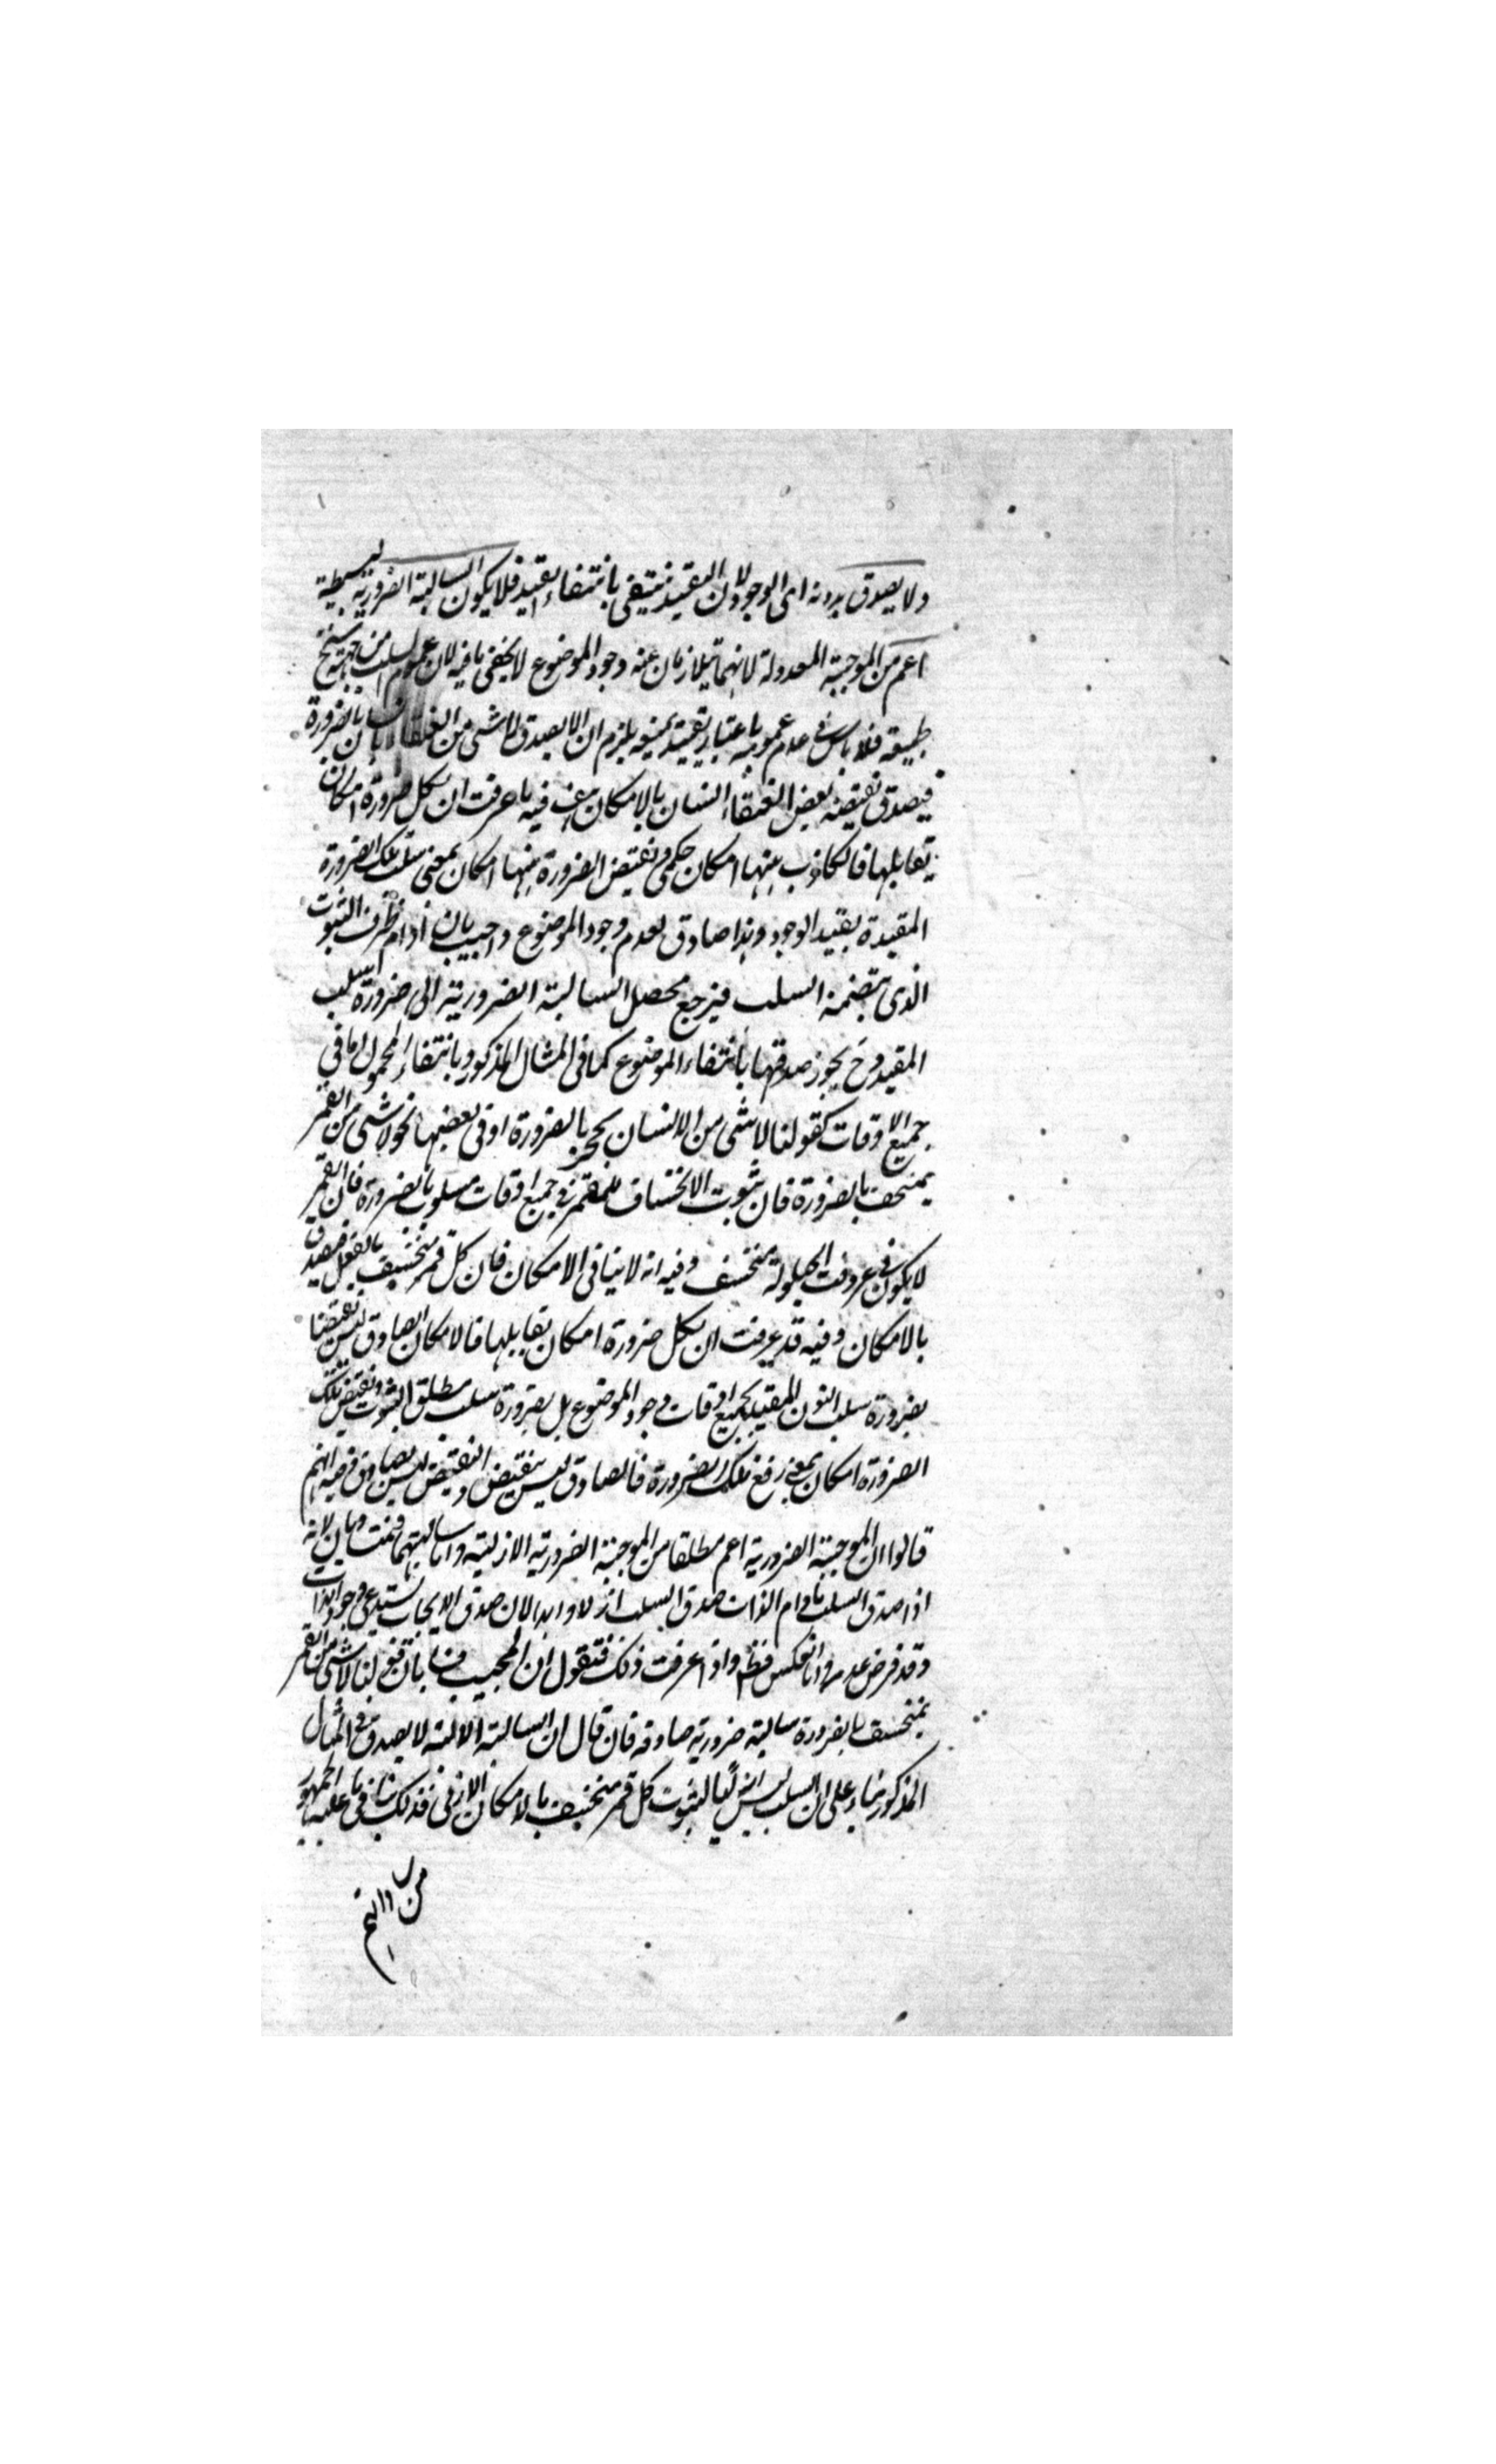 ولا يصدق بدونه اى الوجود لان المقيد ينتفى بانتفاء القيد فلا يكون السالبة الضرورية البسيطة
اعم من الموجبة المعدولة لانهما يتلازمان عند وجود الموضوع لا يخفى ما فيه لان عموم السلب من جهة سنخ
طبيعته فلا باس فى عدم عمومه باعتبار يلزم ان لا يصدق لا شى من العنقاء بانسان بالضرورة
فيصدق نقيضه بعض العنقاء انسان بالامكان هف فيه ما عرفت ان لكل ضرورة امكان
يقابلها فالكاذب ههنا امكان حكمى ونقيض الضرورة ههنا امكان بمعنى سلب تلك الضرورة
المقيدة بقيد الوجود وهذا صادق لعدم وجود الموضوع واجيب بان مادام ظرف الثبوت
الذى يتضمنه السلب فيرجع محصل السالبة الضرورية الى ضرورة سلب
المقيد وح يجوز صدقها بانتفاء الموضوع كما فى المثال المذكور وبانتفاء المحمول اما فى
جميع الاوقات كقولنا لا شى من الانسان بحجر بالضرورة او فى بعضها نحو لا شى من القمر
بمنخسف بالضرورة فان ثبوت الانخساف للقمر فى جميع اوقات مسلوب بالضرورة فان القمر
لا يكون فى غير وقت الحيلولة بمنخسف وفيه انه لا ينافى الامكان فان كل قمر منخسف بالفعل فيصدق
بالامكان وفيه قد عرفت ان لكل ضرورة امكان يقابلها فالامكان الصادق ليس نقيضا
بضرورة سلب المقيد بجميع اوقات وجود الموضوع بل بضرورة سلب مطلق الثبوت ونقيض تلك
الضرورة امكان بمعنى رفع تلك الضرورة فالصادق ليس بنقيض والنقيض ليس بصادق فيه انهم
قالوا ان الموجبة الضرورية اعم مطلقا من الموجبة الضرورية الازلية واما سالبتهما فمتساويان لانه
اذا صدق السلب مادام الذات صدق السلب ازلا وابدا لان صدق الايجاب يستدعى وجود الذات
وقد فرض عدمه واما العكس فظ واذا عرفت ذلك فنقول ان المجيب قولنا لا شى من القمر
بمنخسف بالضرورة سالبة ضرورية صادقة فان قال ان السالبة الازلية لا يصدق فى المثال
المذكور بناء على ان السلب ليس ازليا لثبوت كل قمر منخسف بالامكان الازلى فذلك ينافى ما عليه الجمهور